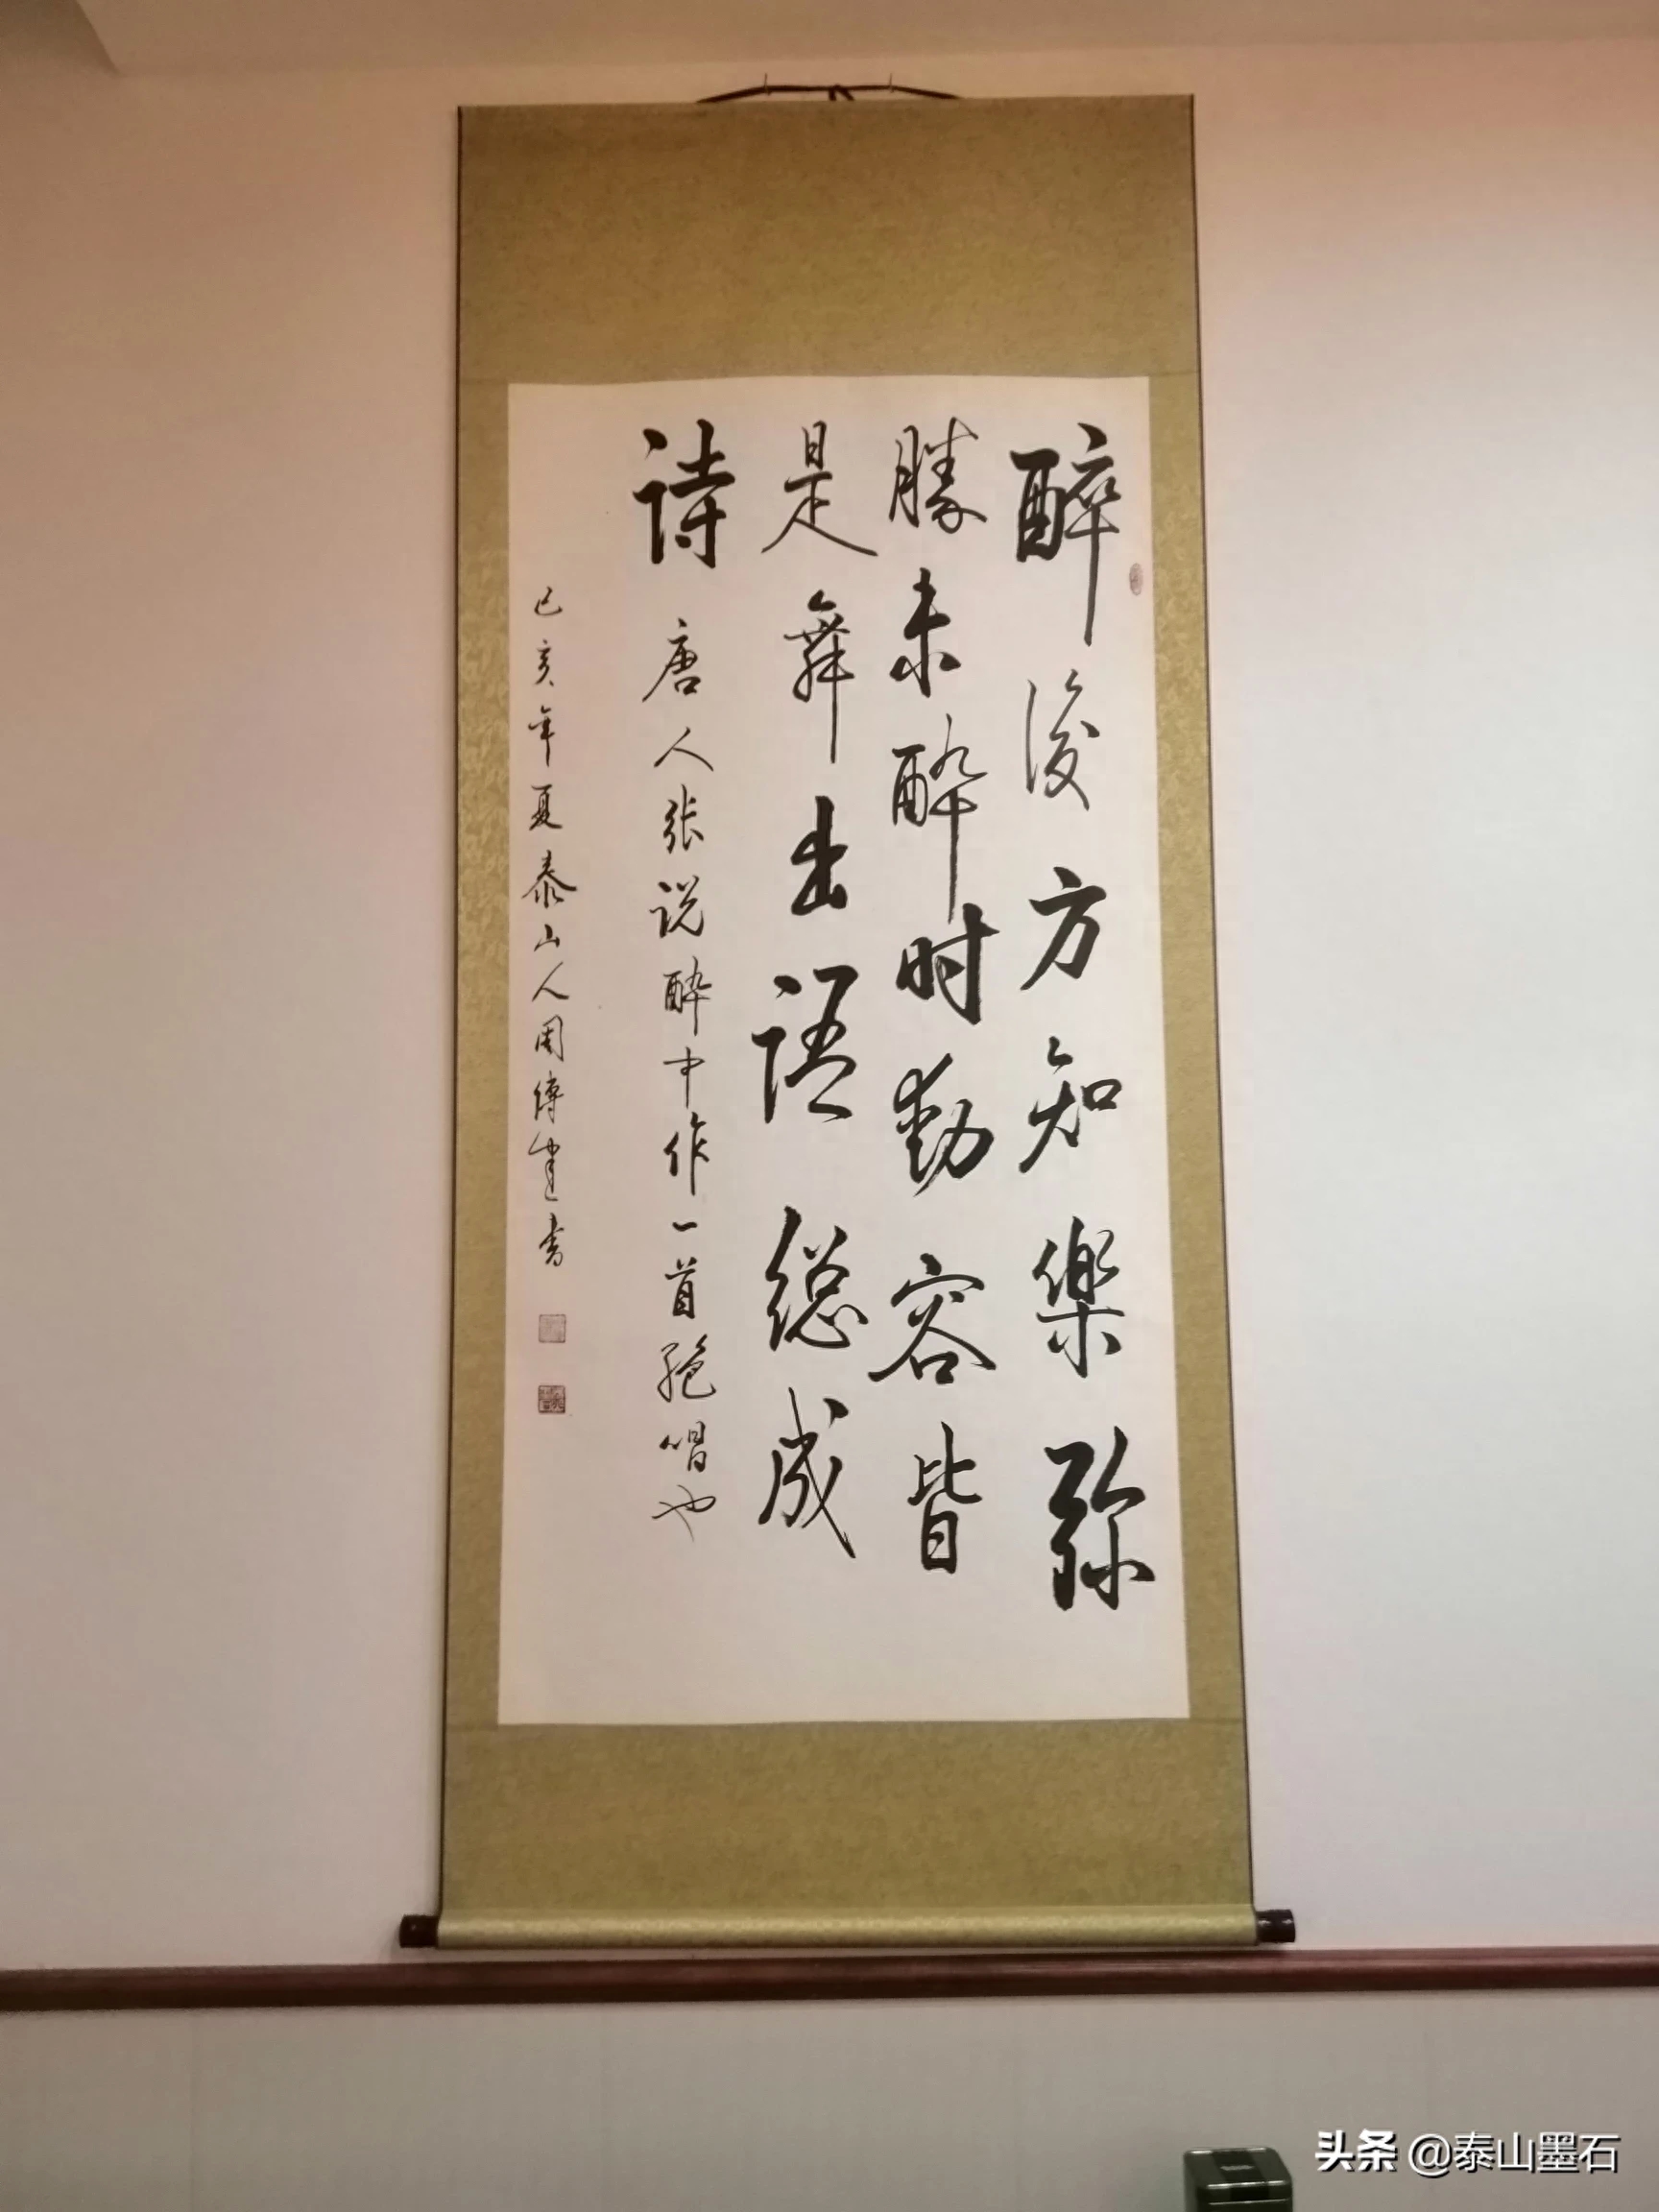 醉後方知樂弥
勝未醉时動容皆
是舞出语総成
诗 唐人张说醉中作一首绝唱也
己亥年夏泰山人周传建书
头条 @泰山墨石